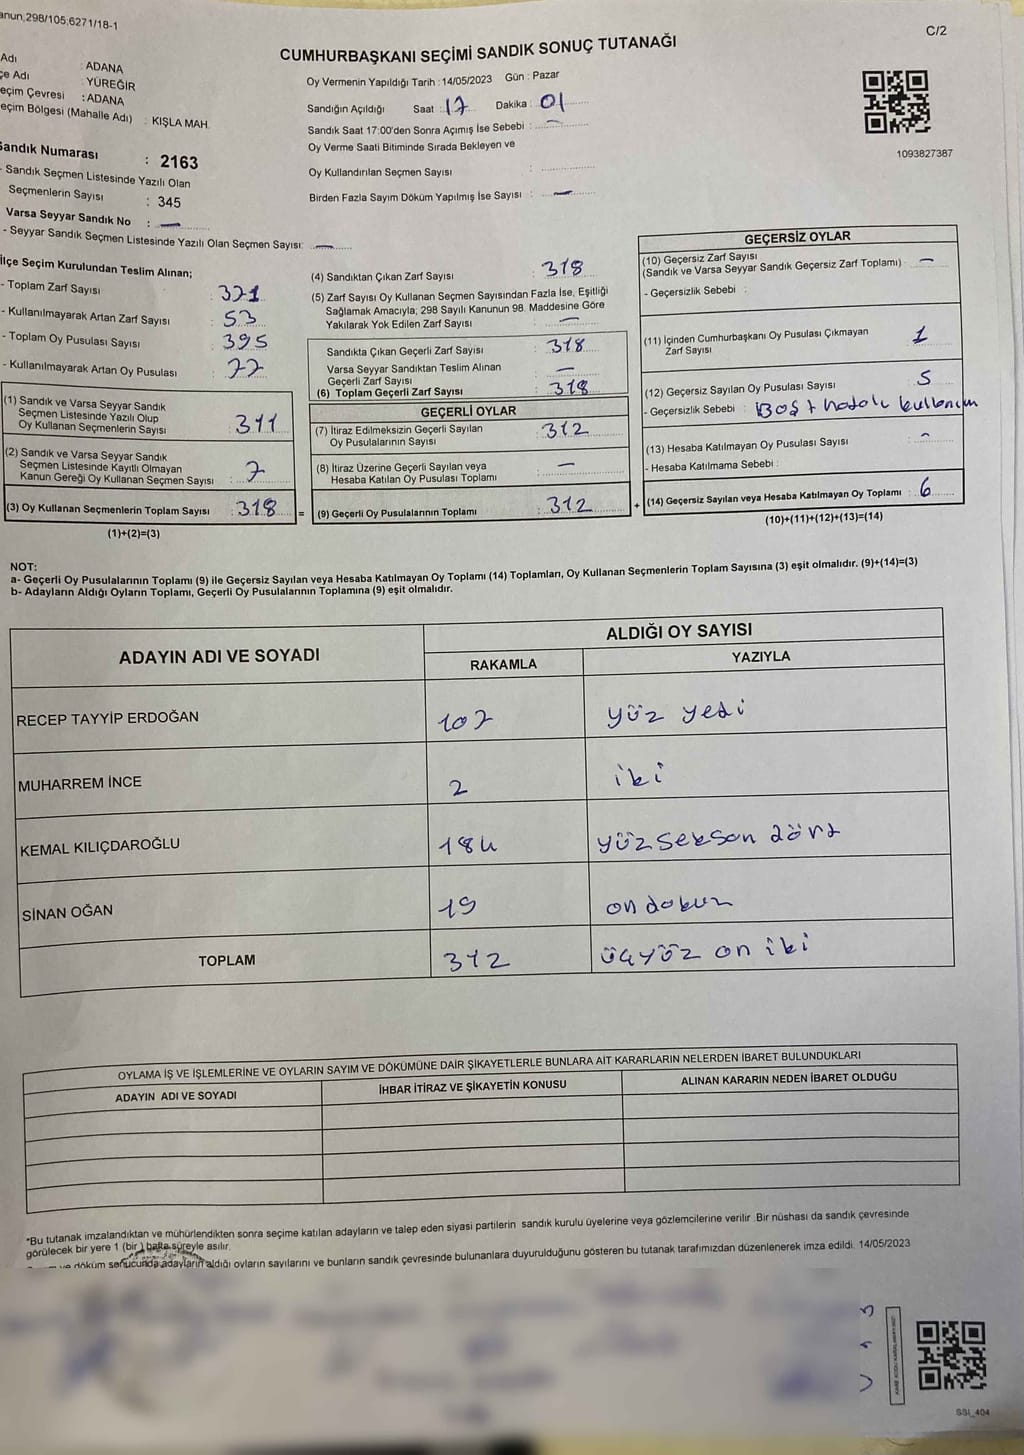 anun,298/105,6271/18-1
C/2
CUMHURBAŞKANI SEÇİMİ SANDIK SONUÇ TUTANAĞI
Adı : ADANA
çe Adı : YÜREĞİR
eçim Çevresi : ADANA
eçim Bölgesi (Mahalle Adı) : KIŞLA MAH
Oy Vermenin Yapıldığı Tarih : 14/05/2023 Gün : Pazar
Sandığın Açıldığı Saat : 17 Dakika : 01
Sandık Saat 17:00'den Sonra Açımış İse Sebebi : —
Oy Verme Saati Bitiminde Sırada Bekleyen ve
Oy Kullandırılan Seçmen Sayısı :
Birden Fazla Sayım Döküm Yapılmış İse Sayısı : —
1093827387
Sandık Numarası : 2163
- Sandık Seçmen Listesinde Yazılı Olan
Seçmenlerin Sayısı : 345
Varsa Seyyar Sandık No : —
- Seyyar Sandık Seçmen Listesinde Yazılı Olan Seçmen Sayısı: —
İlçe Seçim Kurulundan Teslim Alınan;
- Toplam Zarf Sayısı : 371
- Kullanılmayarak Artan Zarf Sayısı : 53
- Toplam Oy Pusulası Sayısı : 395
- Kullanılmayarak Artan Oy Pusulası : 77
(1) Sandık ve Varsa Seyyar Sandık
Seçmen Listesinde Yazılı Olup
Oy Kullanan Seçmenlerin Sayısı : 311
(2) Sandık ve Varsa Seyyar Sandık
Seçmen Listesinde Kayıtlı Olmayan
Kanun Gereği Oy Kullanan Seçmen Sayısı : 7
(3) Oy Kullanan Seçmenlerin Toplam Sayısı : 318 =
(1)+(2)=(3)
(4) Sandıktan Çıkan Zarf Sayısı : 318
(5) Zarf Sayısı Oy Kullanan Seçmen Sayısından Fazla İse, Eşitliği
Sağlamak Amacıyla; 298 Sayılı Kanunun 98. Maddesine Göre
Yakılarak Yok Edilen Zarf Sayısı : —
Sandıkta Çıkan Geçerli Zarf Sayısı : 318
Varsa Seyyar Sandıktan Teslim Alınan
Geçerli Zarf Sayısı : —
(6) Toplam Geçerli Zarf Sayısı : 318
GEÇERLİ OYLAR
(7) İtiraz Edilmeksizin Geçerli Sayılan
Oy Pusulalarının Sayısı : 312
(8) İtiraz Üzerine Geçerli Sayılan veya
Hesaba Katılan Oy Pusulası Toplamı : —
(9) Geçerli Oy Pusulalarının Toplamı : 312 +
GEÇERSİZ OYLAR
(10) Geçersiz Zarf Sayısı
(Sandık ve Varsa Seyyar Sandık Geçersiz Zarf Toplamı) : —
- Geçersizlik Sebebi :
(11) İçinden Cumhurbaşkanı Oy Pusulası Çıkmayan
Zarf Sayısı : 1
(12) Geçersiz Sayılan Oy Pusulası Sayısı : 5
- Geçersizlik Sebebi : Boş + hatalı kullanım
(13) Hesaba Katılmayan Oy Pusulası Sayısı : -
- Hesaba Katılmama Sebebi :
(14) Geçersiz Sayılan veya Hesaba Katılmayan Oy Toplamı : 6
(10)+(11)+(12)+(13)=(14)
NOT:
a- Geçerli Oy Pusulalarının Toplamı (9) ile Geçersiz Sayılan veya Hesaba Katılmayan Oy Toplamı (14) Toplamları, Oy Kullanan Seçmenlerin Toplam Sayısına (3) eşit olmalıdır. (9)+(14)=(3)
b- Adayların Aldığı Oyların Toplamı, Geçerli Oy Pusulalarının Toplamına (9) eşit olmalıdır.
ADAYIN ADI VE SOYADI
ALDIĞI OY SAYISI
RAKAMLA YAZIYLA
RECEP TAYYİP ERDOĞAN 107 yüz yedi
MUHARREM İNCE 2 iki
KEMAL KILIÇDAROĞLU 184 yüz seksen dört
SİNAN OĞAN 19 on dokuz
TOPLAM 312 üçyüz on iki
OYLAMA İŞ VE İŞLEMLERİNE VE OYLARIN SAYIM VE DÖKÜMÜNE DAİR ŞİKAYETLERLE BUNLARA AİT KARARLARIN NELERDEN İBARET BULUNDUKLARI
ADAYIN ADI VE SOYADI İHBAR İTİRAZ VE ŞİKAYETİN KONUSU ALINAN KARARIN NEDEN İBARET OLDUĞU
*Bu tutanak imzalandıktan ve mühürlendikten sonra seçime katılan adayların ve talep eden siyasi partilerin sandık kurulu üyelerine veya gözlemcilerine verilir .Bir nüshası da sandık çevresinde
görülecek bir yere 1 (bir ) hafta süreyle asılır.
ve döküm sonucunda adayların aldığı oyların sayılarını ve bunların sandık çevresinde bulunanlara duyurulduğunu gösteren bu tutanak tarafımızdan düzenlenerek imza edildi. 14/05/2023
SSI_404